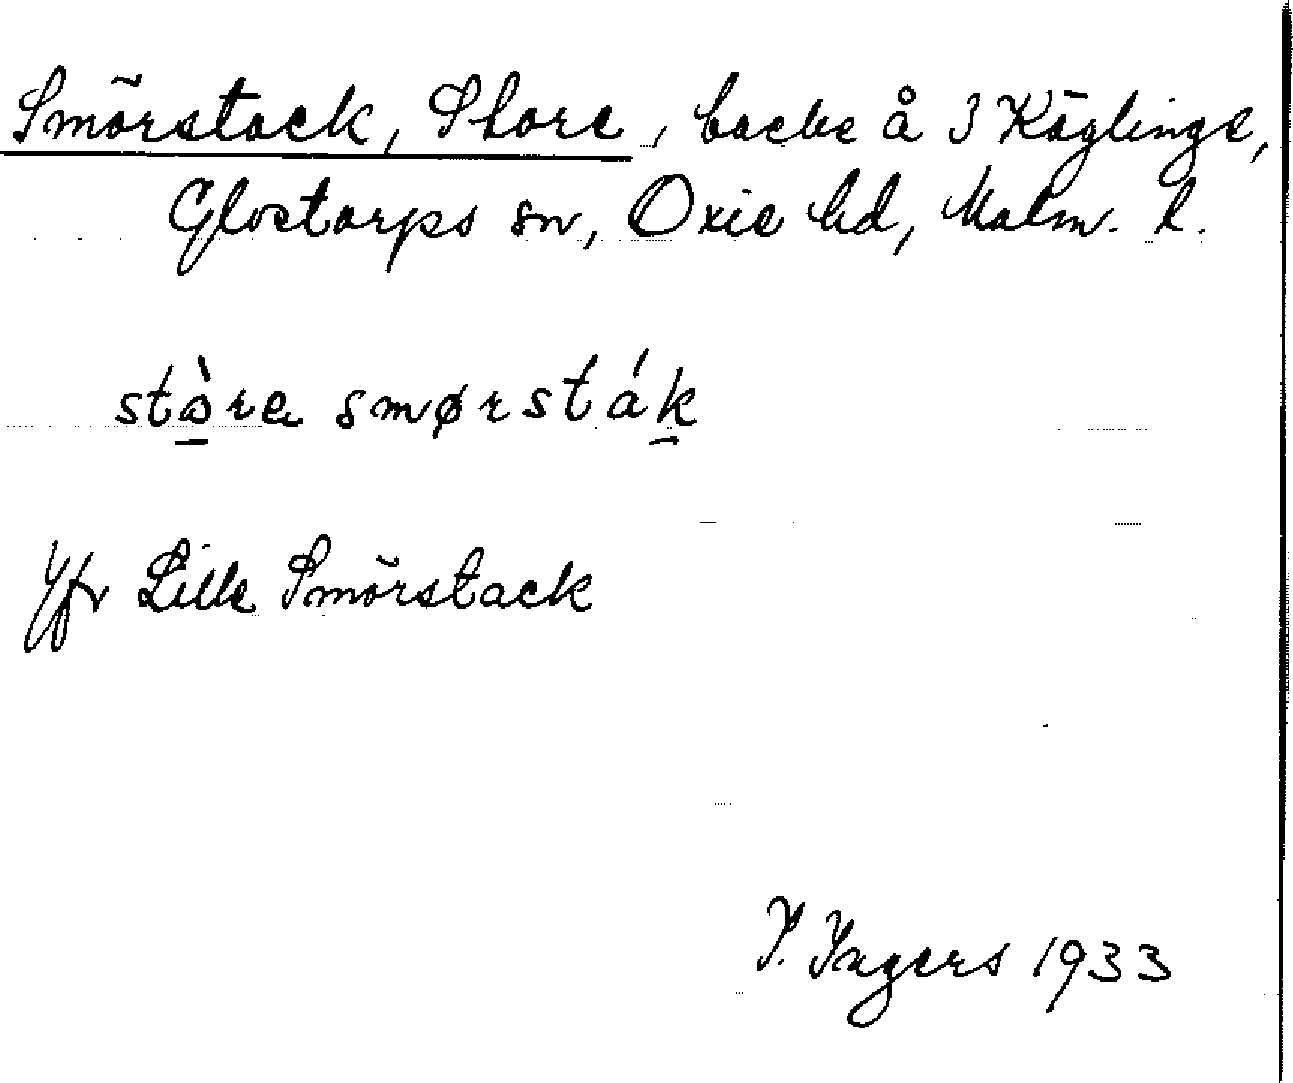 Smörstack, Store, backe å 3 Käglinge,
Glostorps sn, Oxie hd, Malm. l.
stò̠re smørsták̠
Jfr Lille Smörstack
I. Ingers 1933